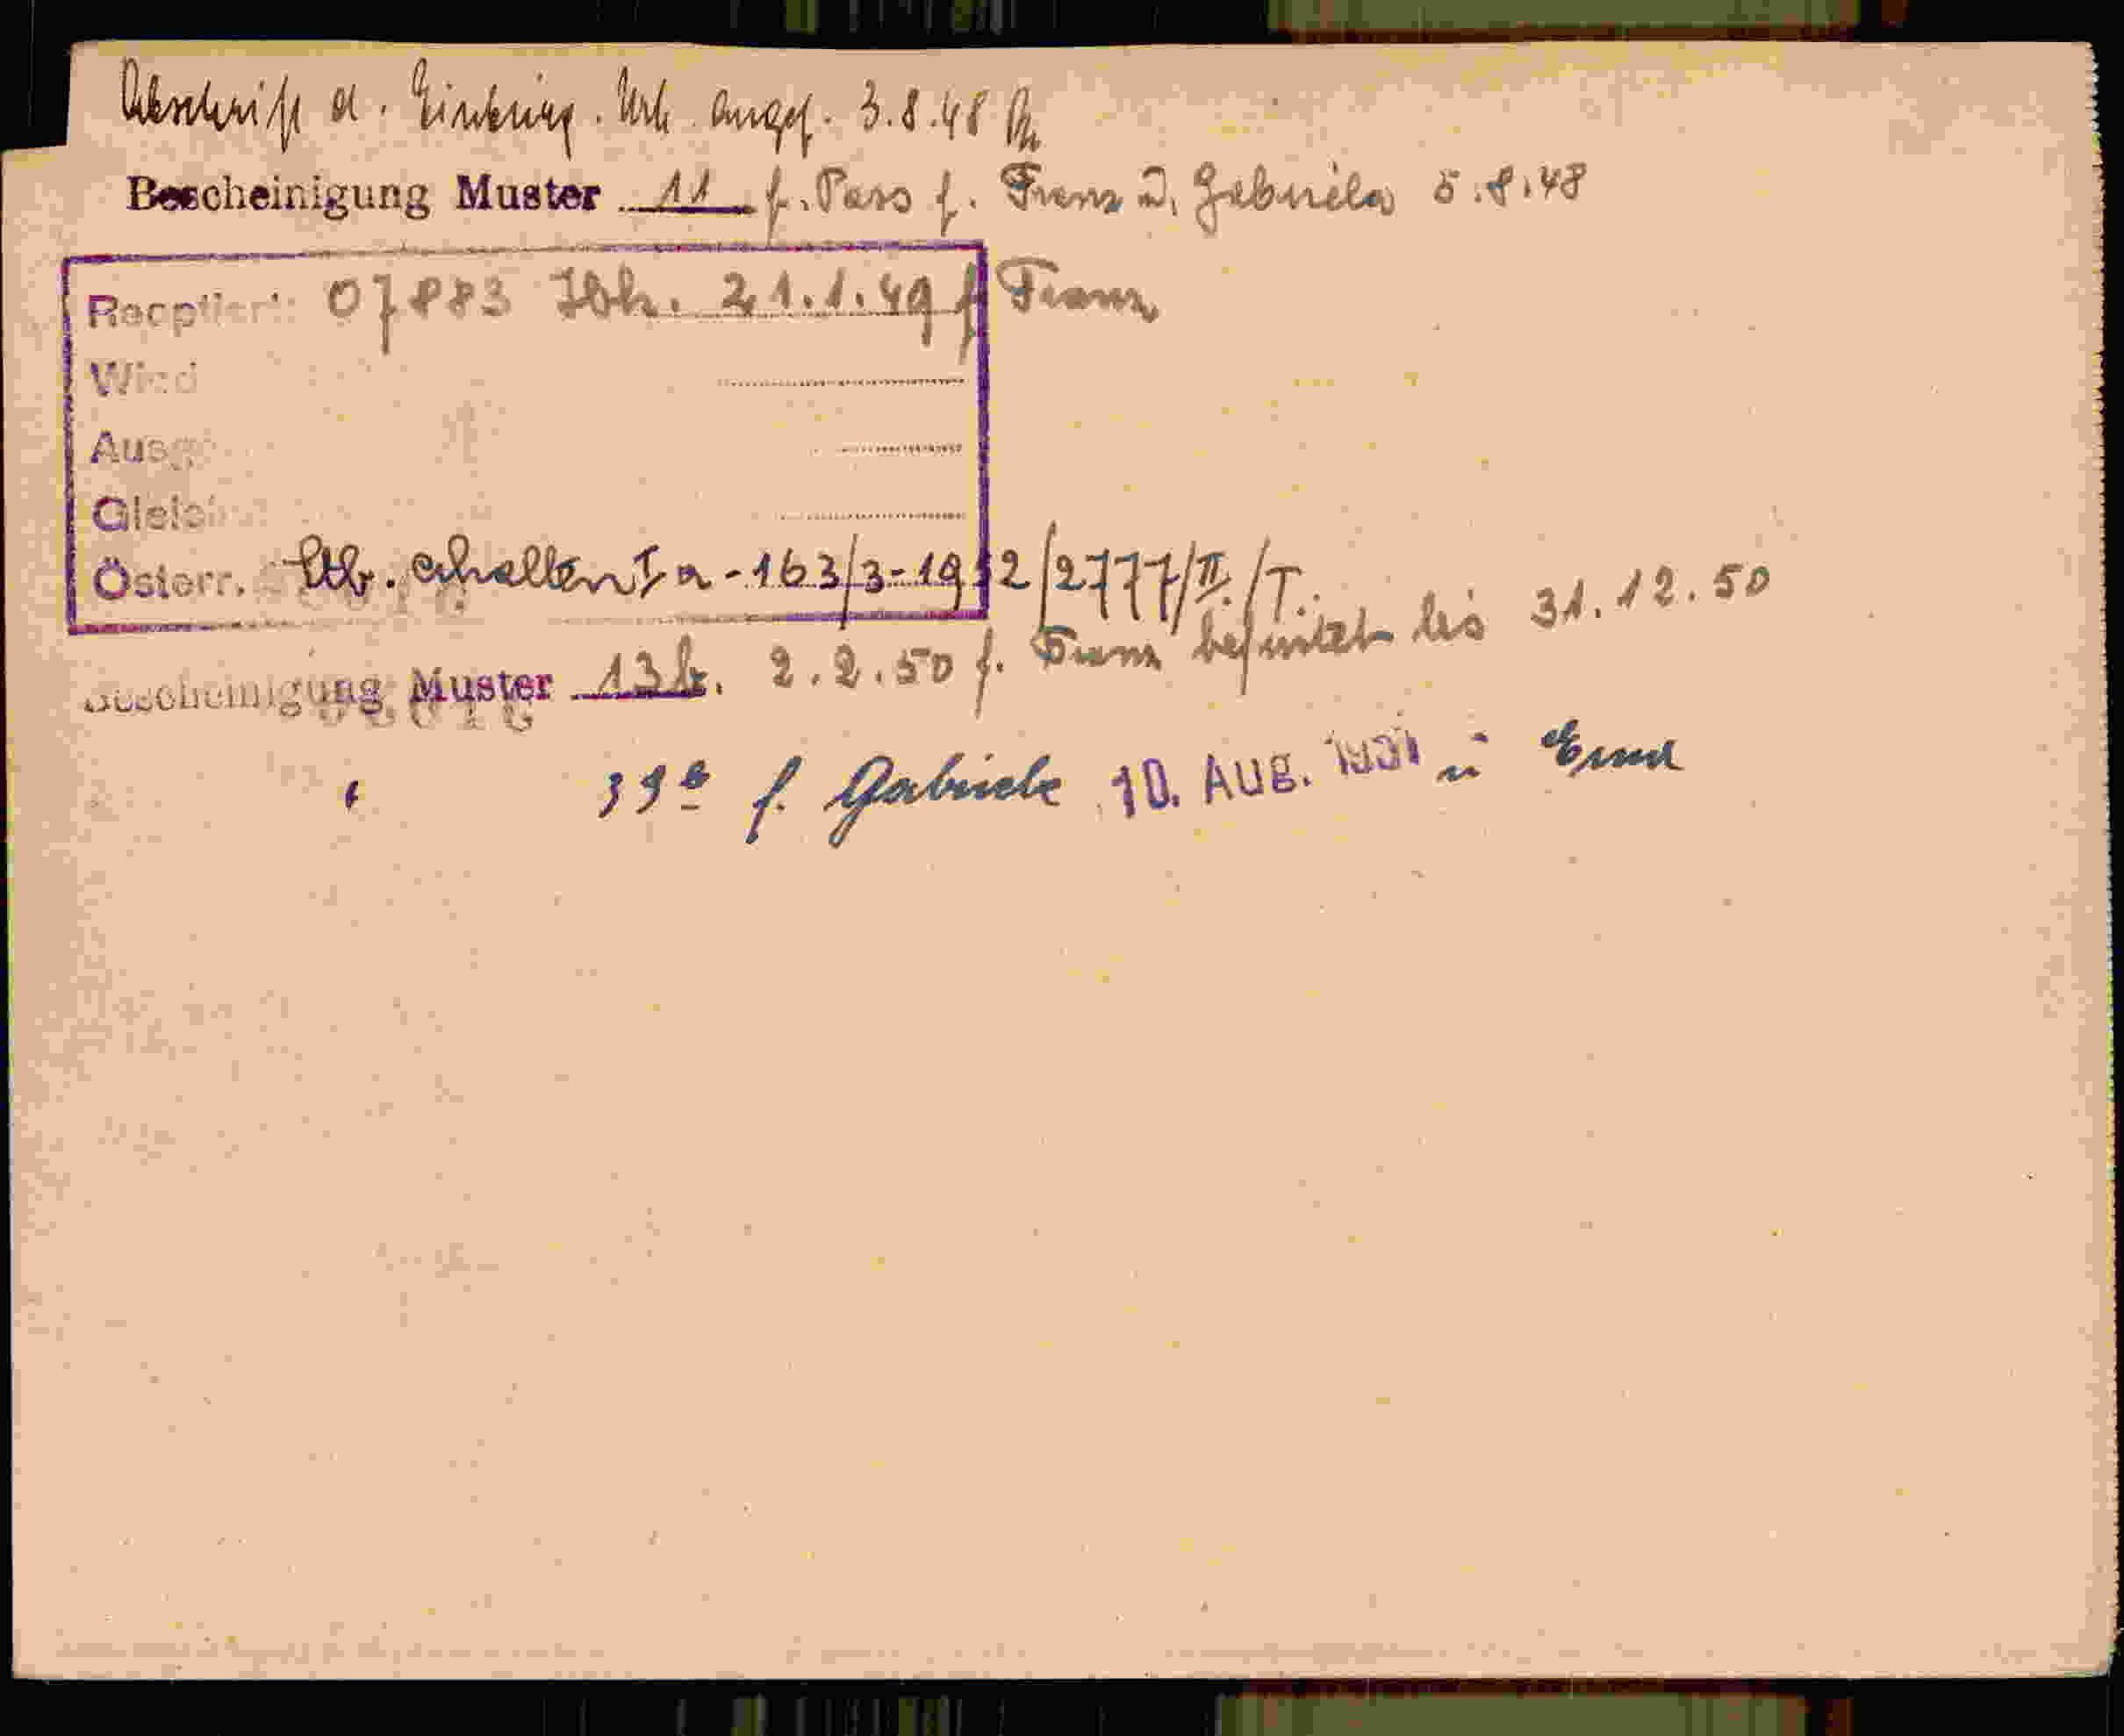 Abschrift d. Einbürg. Urk. angef. 3.8.48
Bescheinigung Muster 11 f. Pass f. Franz u. Gabriela 5.8.48
07883 Ibk. 21.1.49 f Franz
Wird
Ausg
Gleich
Österr. Stb. erhalten Ia-163/3-1952/2777/II./T.
Bescheinigung Muster 13b. 2.2.50 f. Franz befristet bis 31.12.50
39b f. Gabriele 10. Aug. 1951 u